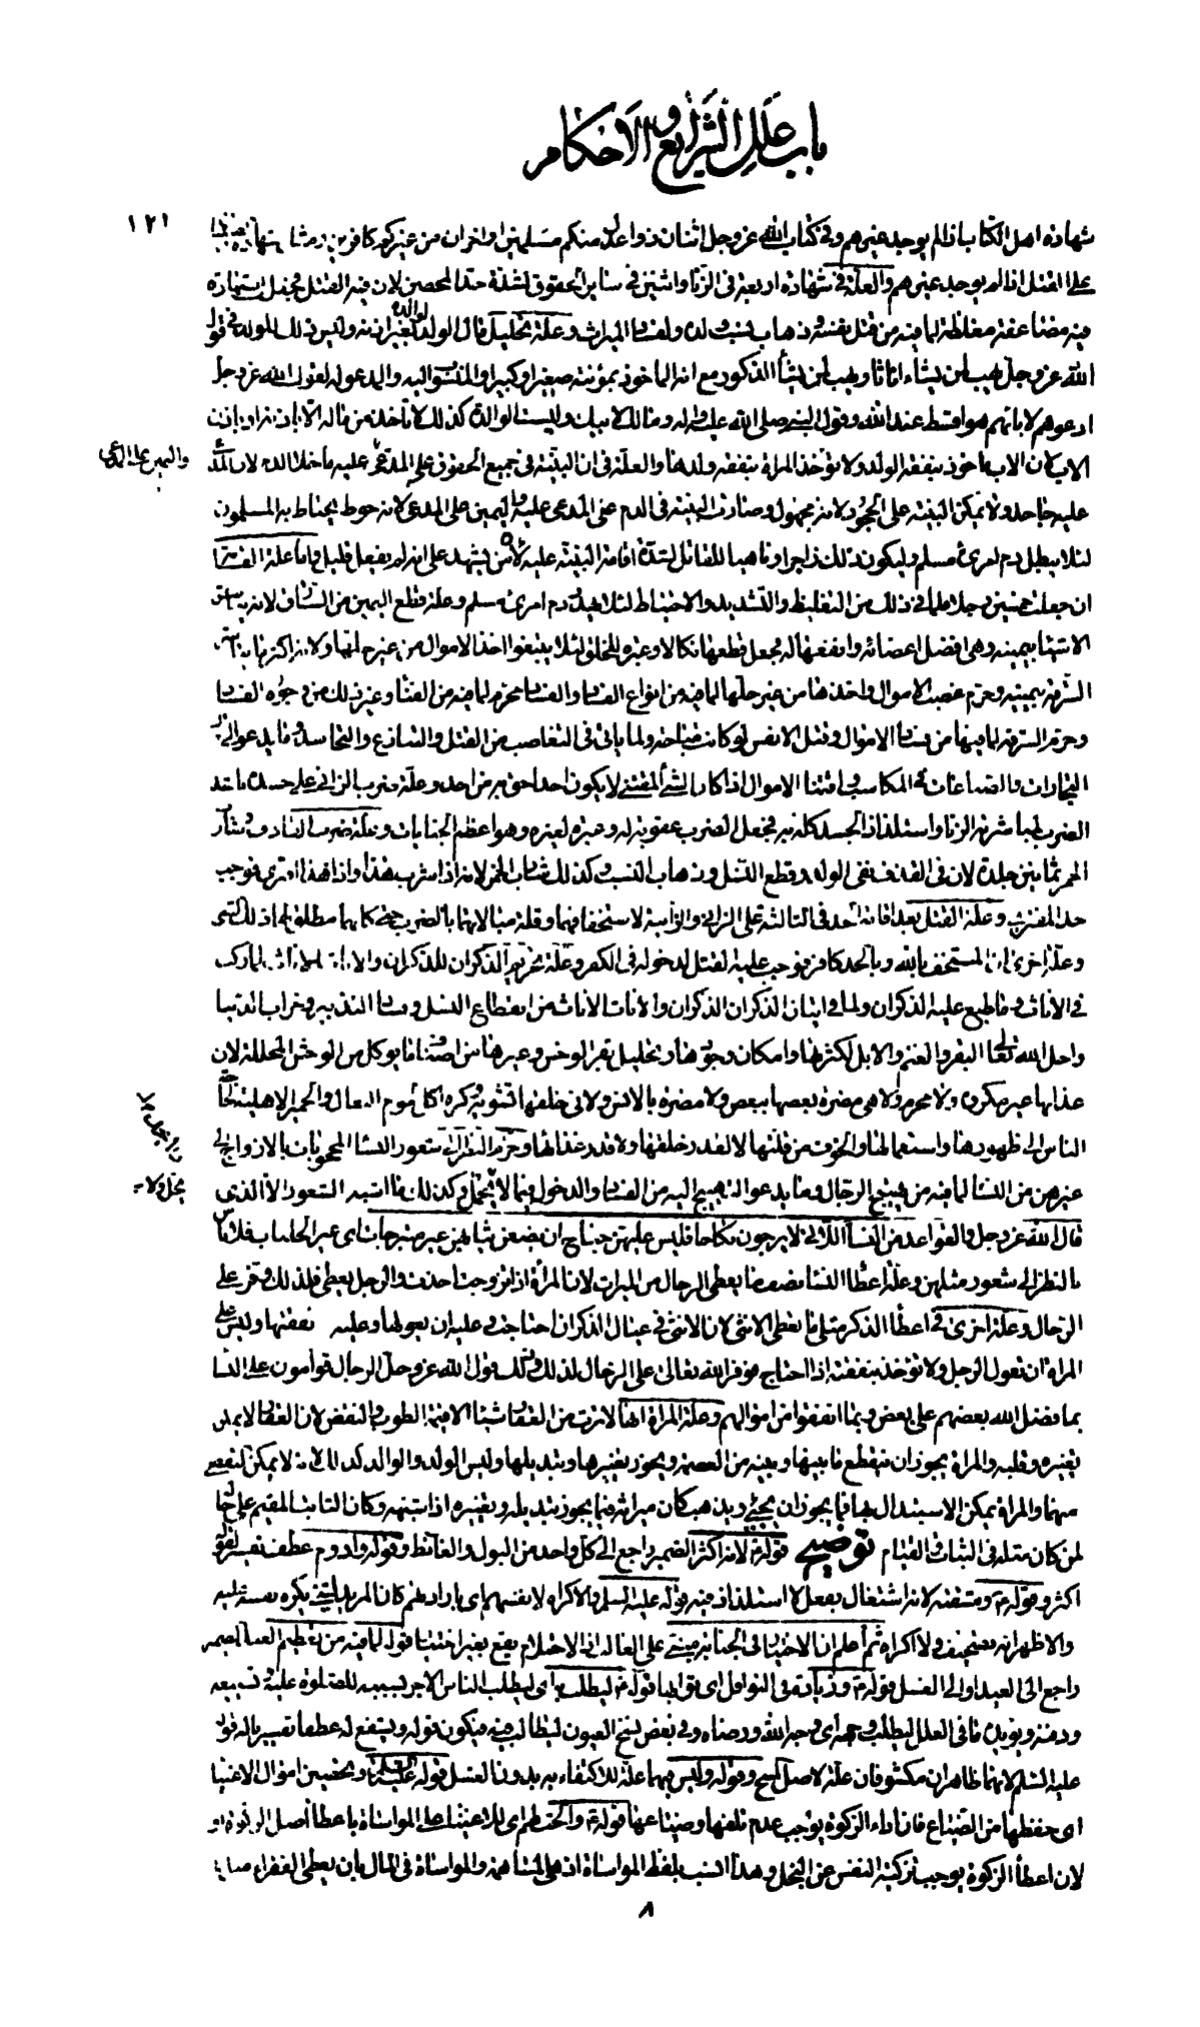 باب علل الشرايع والاحكام
١٢١
شهادة اهل الكتاب اذا لم يوجد غيرهم وفي كتاب الله عز وجل اثنان ذوا عدل منكم مسلمين او اخران من غيركم كافرين
على القتل اذا لم يوجد غيرهم والعلة في شهادة اربعة في الزنا واثنين في ساير الحقوق لشدة حد المحصن لان فيه القتل فجعل الشهادة
فيه مضاعفة مغلظة لما فيه من قتل نفسه وذهاب نسب ولده ولفساد الميراث وعلة تحليل مال الولد لوالده بغير اذنه وليس ذلك للولد في قول
الله عز وجل يهب لمن يشاء اناثا ويهب لمن يشاء الذكور مع انه الماخوذ بمؤنته صغيرا وكبيرا والمنسوب اليه والمدعو له لقول الله عز وجل
ادعوهم لابائهم هو اقسط عند الله وقول النبي صلى الله عليه واله انت ومالك لابيك وليست الوالدة كذلك لا تاخذ من ماله الا باذنه او باذن
الاب لان الاب ماخوذ بنفقة الولد ولا تؤخذ المراة بنفقة ولدها والعلة في ان البينة في جميع الحقوق على المدعي عليه ما خلا الدم لان المدعى
واليمين على المدعى
عليه جاحد ولا يمكن البينة على الجحود لانه مجهول وصارت البينة في الدم على المدعى عليه واليمين على المدعي لانه حوط يحتاط به المسلمون
لئلا يبطل دم امرئ مسلم وليكون ذلك زاجرا وناهيا للقاتل لشدة اقامة البينة عليه لان من يشهد على انه لم يفعل قليل واما علة القسامة
ان جعلت خمسين رجلا فلما في ذلك من التغليظ والتشديد والاحتياط لئلا يهدر دم امرئ مسلم وعلة قطع اليمين من السارق لانه يباشر
الاشياء بيمينه وهي افضل اعضائه وانفعها له فجعل قطعها نكالا وعبرة للخلق لئلا يبتغوا اخذ الاموال من غير حلها ولانه اكثر ما يباشر
السرقة بيمينه وحرم غصب الاموال واخذها من غير حلها لما فيه من انواع الفساد والفساد محرم لما فيه من الفناء وغير ذلك من وجوه الفساد
وحرم السرقة لما فيها من فساد الاموال وقتل الانفس لو كانت مباحة ولما ياتي في التغاصب من القتل والتنازع والتحاسد وما يدعو الى ترك
التجارات والصناعات في المكاسب واقتناء الاموال اذا كان الشئ المقتنى لا يكون احد احق به من احد وعلة ضرب الزاني على جسده باشد
الضرب لمباشرته الزنا واستلذاذ الجسد كله به فجعل الضرب عقوبة له وعبرة لغيره وهو اعظم الجنايات وعلة ضرب القاذف وشارب
الخمر ثمانين جلدة لان في القذف نفي الولد وقطع النسل وذهاب النسب وكذلك شارب الخمر لانه اذا شرب هذى واذا هذى افترى فوجب
حد المفتري وعلة القتل بعد اقامة الحد في الثالثة على الزاني والزانية لاستخفافهما وقلة مبالاتهما بالضرب حتى كانهما مطلق لهما ذلك الشئ
وعلة اخرى ان المستخف بالله وبالحد كافر فوجب عليه القتل لدخوله في الكفر وعلة تحريم الذكران للذكران والاناث للاناث لما ركب
في الاناث وما طبع عليه الذكران ولما في اتيان الذكران الذكران والاناث الاناث من انقطاع النسل وفساد التدبير وخراب الدنيا
واحل الله تعالى البقر والغنم والابل لكثرتها وامكان وجودها وتحليل بقر الوحش وغيرها من اصناف ما يوكل من الوحش المحللة لان
غذاءها غير مكروه ولا محرم ولا هي مضرة بعضها ببعض ولا مضرة بالانس ولا في خلقها تشويه وكره اكل لحوم البغال والحمير الاهلية لحاجة
الناس الى ظهورها واستعمالها والخوف من قلتها لا لقذر خلقها ولا قذر غذائها وحرم النظر الى شعور النساء المحجوبات بالازواج والى
غيرهن من النساء لما فيه من تهييج الرجال وما يدعو التهييج اليه من الفساد والدخول فيما لا يحل ولا يجمل وكذلك ما اشبه الشعور الا الذي
يحل ولا
قال الله عز وجل والقواعد من النساء اللاتي لا يرجون نكاحا فليس عليهن جناح ان يضعن ثيابهن غير متبرجات اى غير الجلباب فلا باس
بالنظر الى شعور مثلهن وعلة اعطاء النساء نصف ما يعطى الرجال من الميراث لان المراة اذا تزوجت اخذت والرجل يعطي فلذلك وفر على
الرجال وعلة اخرى في اعطاء الذكر مثلى ما يعطى الانثى لان الانثى في عيال الذكر ان احتاجت وعليه ان يعولها وعليه نفقتها وليس على
المراة ان تعول الرجل ولا تؤخذ بنفقته اذا احتاج فوفر الله تعالى على الرجال لذلك وذلك قول الله عز وجل الرجال قوامون على النساء
بما فضل الله بعضهم على بعض وبما انفقوا من اموالهم وعلة المراة انها لا ترث من العقار شيئا الا قيمة الطوب والنقض لان العقار لا يمكن
تغييره وقلبه والمراة يجوز ان ينقطع ما بينها وبينه من العصمة ويجوز تغييرها وتبديلها وليس الولد والوالد كذلك لانه لا يمكن التفصي
منهما والمراة يمكن الاستبدال بها فما يجوز ان يجئ ويذهب كان ميراثه فيما يجوز تبديله وتغييره اذا اشبهه وكان الثابت المقيم على حاله
لمن كان مثله في الثبات والقيام توضيح قوله لانه اكثر الضمير راجع الى كل واحد من البول والغائط وقوله وادوم عطف تفسير لقوله
اكثر وقوله ومشقته لانه اشتغال بفعل لا استلذاذ فيه قوله عليه السلم والاكراه لانفسهم اى بارادتهم كان المريد لشئ يكره نفسه عليه
والاظهر انه تصحيف ولا اكراه ثم اعلم ان الاختيار في الجنابة مبني على الغالب اذ الاحتلام يقع بغير اختيار قوله لما فيه من تعظيم العبد الضمير
راجع الى العيد او الى الغسل قوله وزيادة في النوافل اى ثوابها قوله ليطلب به اى ليطلب الناس الاجر بسببه للصلوة عليه وتشييعه
ودفنه ويؤيده ما في العلل ليطلب وجهه اى وجه الله ورضاه وفي بعض نسخ العيون ليطالب فيه فيكون قوله ويشفع له عطفا تفسيريا له قوله
عليه السلم لانهما ظاهران مكشوفان علة لاصل المسح وقوله وليس فيهما علة للاكتفاء به بدون الغسل قوله عليه السلم وتحصين اموال الاغنياء
اى حفظها من الضياع فان اداء الزكوة يوجب عدم تلفها وضياعها قوله والحث لهم اى للاغنياء على المواساة باعطاء اصل الزكوة او
لان اعطاء الزكوة يوجب تزكية النفس عن البخل وهذا انسب بلفظ المواساة اذ هي المساهمة والمواساة في المال بان يعطى الفقراء
٨